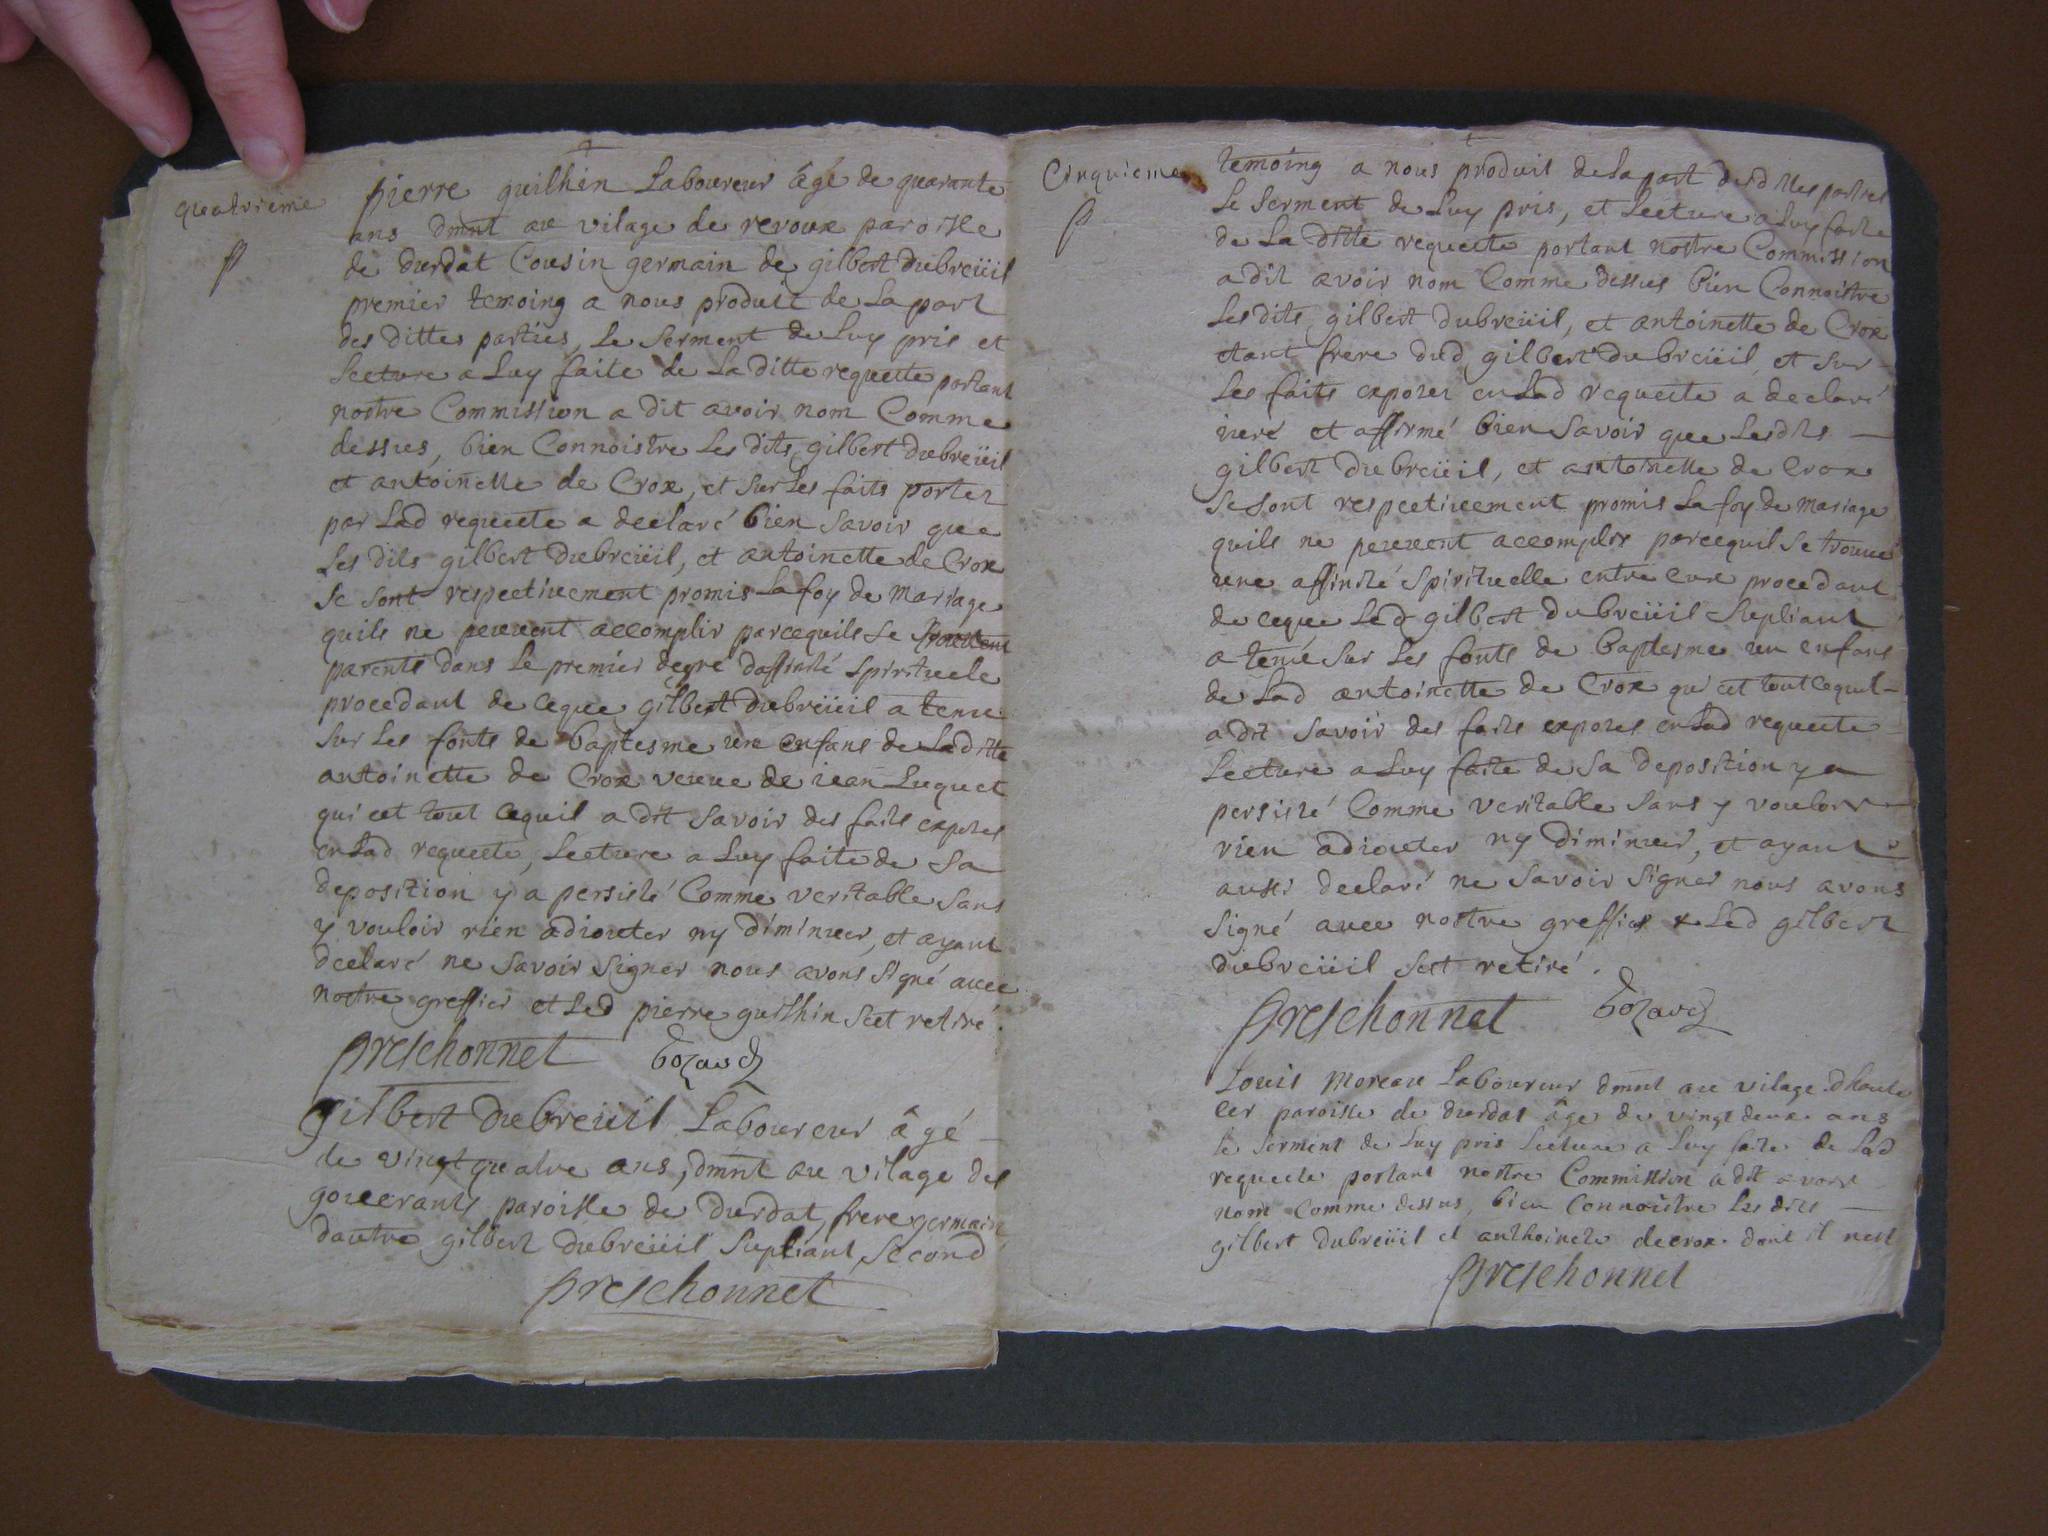 quatrieme
p
pierre guilhin Laboureur âgé de quarante
ans dmnt au vilage de reroux paroisse
de durdat Cousin germain de gilbert dubreüil
premier temoing a nous produit de La part
des dittes parties, Le Serment de Luy pris et
Lecture a Luy faite de La ditte requeste portant
nostre Commission a dit avoir nom Comme
dessus, bien Connoistre Les dits gilbert dubreüil
et antoinette de Crox, et Sur Les faits portez
par Lad requeste a declaré bien Savoir que
Les dits gilbert dubreüil, et antoinette de Crox
Se Sont respectivement promis La foy de Mariage
quils ne peuvent accomplir parcequils Se trouvent
parents dans Le premier degré daffinité Spirituele
procedant de ceque gilbert dubreüil a tenu
Sur Les fonts de baptesme un enfans de Laditte
antoinette de Crox veuve de iean Luquet
qui est tout cequil a dit Savoir des faits exposes
en Lad requeste, Lecture a Luy faite de Sa
deposition y a persisté Comme veritable Sans
y vouloir rien adiouter ny diminuer, et ayant
declaré ne Savoir Signer nous avons Signé avec
nostre greffier et Led pierre guilhin Sest retiré.
Preschonnet bozard
gilbert dubreüil Laboureur âgé
de vingt quatre ans, dmnt au vilage des
gouerants paroisse de Durdat, frere germain
dautre gilbert dubreüil Supliant Second
Preschonnet
Cinquieme
p
temoing a nous produit de La part desdittes parties
Le Serment de Luy pris, et Lecture a Luy faite
de La ditte requeste portant nostre Commission
a dit avoir nom Comme dessus bien Connoistre
Lesdits gilbert dubreüil, et antoinette de Crox
etant frere dud gilbert dubreüil, et Sur
Les faits exposez en Lad requeste a declaré
iuré et affirmé bien Savoir que Lesdits
gilbert dubreüil, et antoinette de Crox
Se Sont respectivement promis La foy de Mariage
quils ne peuvent accomplir parcequil Se trouve
une affinité Spirituelle entre eux procedant
de ceque Led gilbert dubreüil Supliant
a tenu Sur Les fonts de baptesme un enfans
de Lad antoinette de Crox qui est tout cequil
a dit Savoir des faits exposes en Lad requeste
Lecture a Luy faite de Sa deposition y a
persisté Comme veritable Sans y vouloir
rien adiouter ny diminuer, et ayant
aussi declaré ne Savoir Signer nous avons
Signé avec nostre greffier & Led gilbert
dubreüil Sest retiré.
Preschonnet bozard
Louis Moreau Laboureur dmnt au vilage dhaute
cer paroisse de durdat âge de vingt deux ans
le Serment de Luy pris Lecture a Luy faite de Lad
requeste portant nostre Commission a dit avoir
nom Comme dessus, bien Connoistre Les dits
gilbert dubreüil et anthoinete decrox dont il nest
Preschonnet